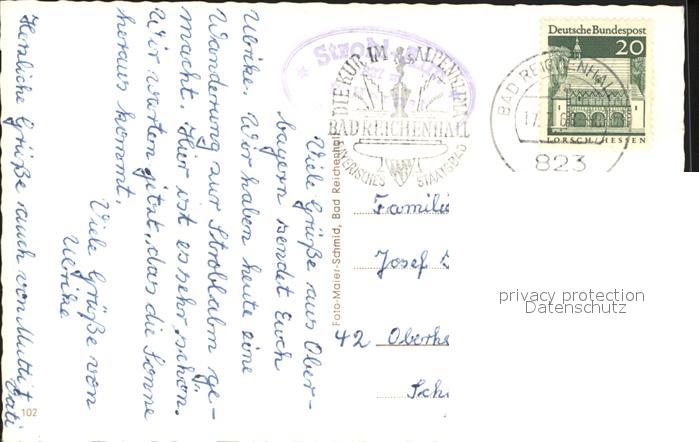 Viele Grüße aus Ober-
bayern sendet Euch
Ulrike. Wir haben heute eine
Wanderung zur Stroblalm ge-
macht. Hier ist es sehr schön.
Wir warten jetzt, das die Sonne
heraus kommt.
Viele Grüße von
Ulrike
Herzliche Grüße auch von Mutti + Vati
102
Foto-Maier-Schmid, Bad Reichenhall
DIE KUR IM ALPENKLIMA
BAD REICHENHALL
BAYERISCHES STAATSBAD
Deutsche Bundespost
20
LORSCH/HESSEN
BAD REICHENHALL
17.
823
Familie
Josef
42 Oberh
Sch
privacy protection
Datenschutz